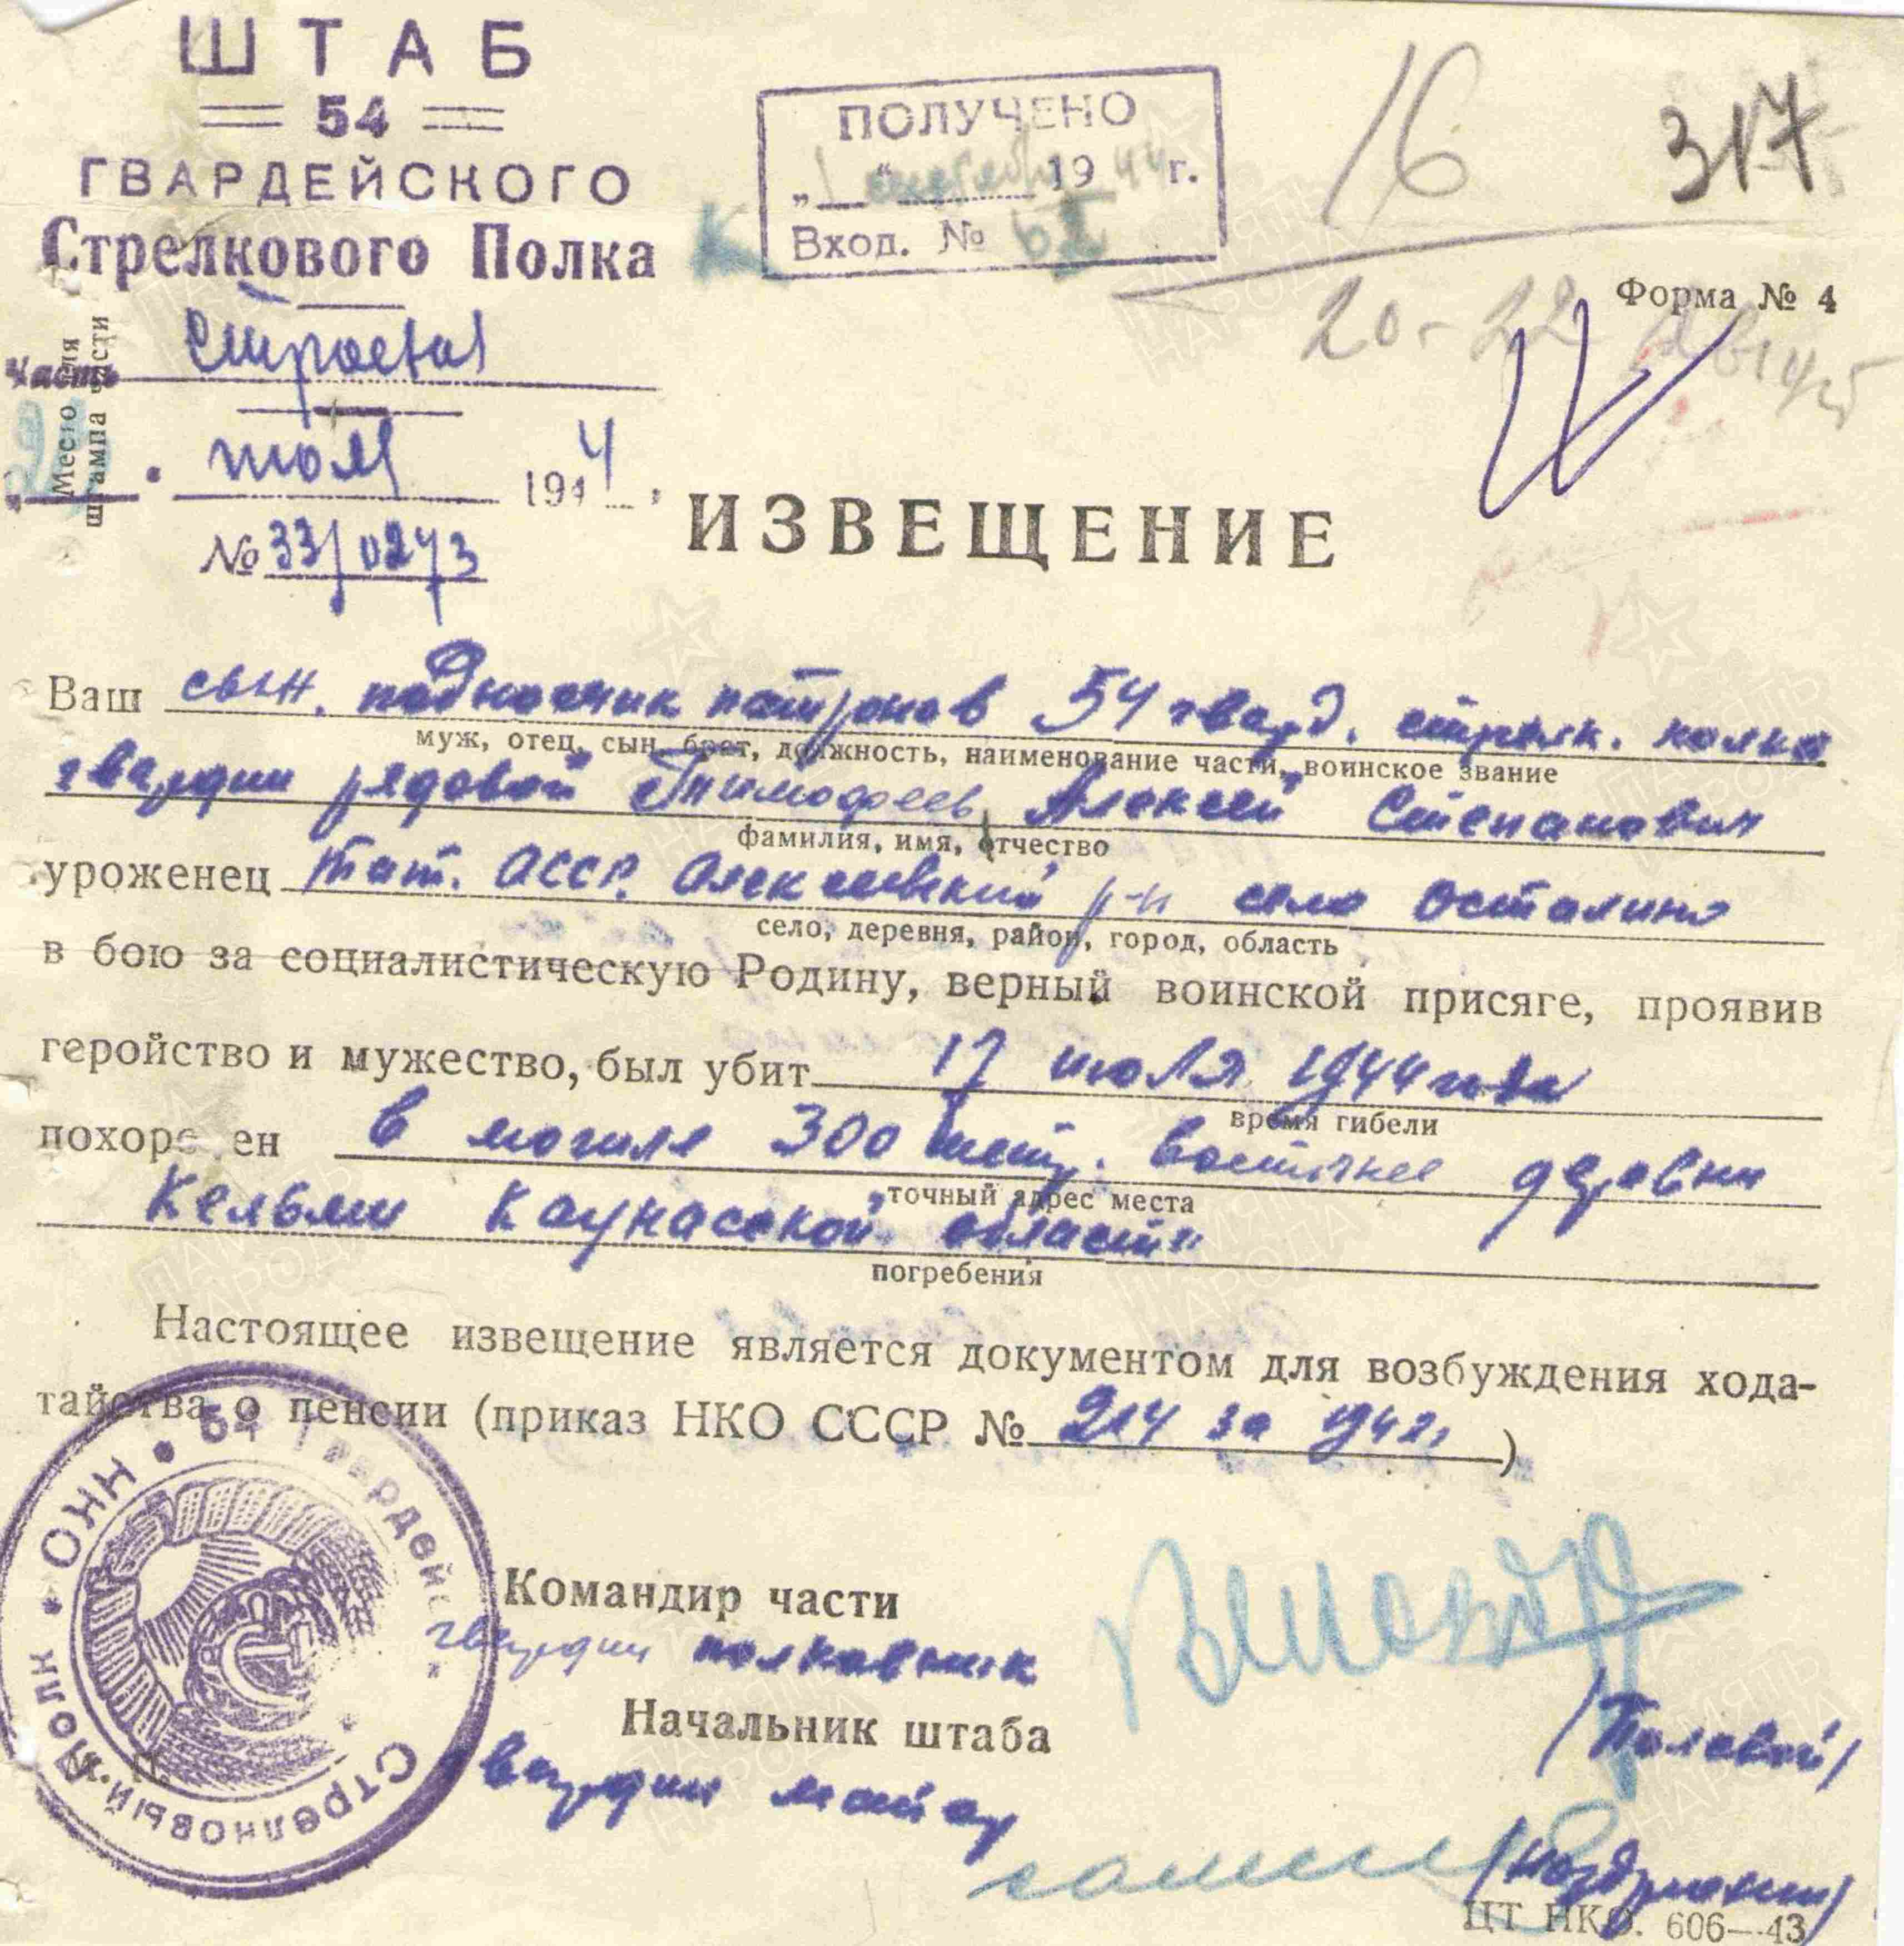 ШТАБ
54
ГВАРДЕЙСКОГО
Стрелкового Полка
ПОЛУЧЕНО
„1“ 19 44 г.
Вход. №
К
16
317
Форма № 4
20-22
Место для
штампа части
Часть Строевая
июля 1944
№ 33/0273
ИЗВЕЩЕНИЕ
Ваш сын. подносчик патронов 54 гвард. стрелк. полка
муж, отец, сын, брат, должность, наименование части, воинское звание
гвардии рядовой Тимофеев Алексей Степанович
фамилия, имя, отчество
уроженец Тат. АССР. Алексеевский р-н село Осталино
село, деревня, район, город, область
в бою за социалистическую Родину, верный воинской присяге, проявив
геройство и мужество, был убит 17 июля 1944 года
время гибели
похоре ен в могиле 300 метр. восточнее деревни
точный адрес места
Кельбли Каунасской области
погребения
Настоящее извещение является документом для возбуждения хода-
тайства о пенсии (приказ НКО СССР № 214 за 1942г)
54 Гвардейс Стрелковый Полк • НКО •
М. П.
Командир части
гвардии полковник
/Половой/
Начальник штаба
гвардии майор
ЦТ НКО. 606—43
ПАМЯТЬ
НАРОДА